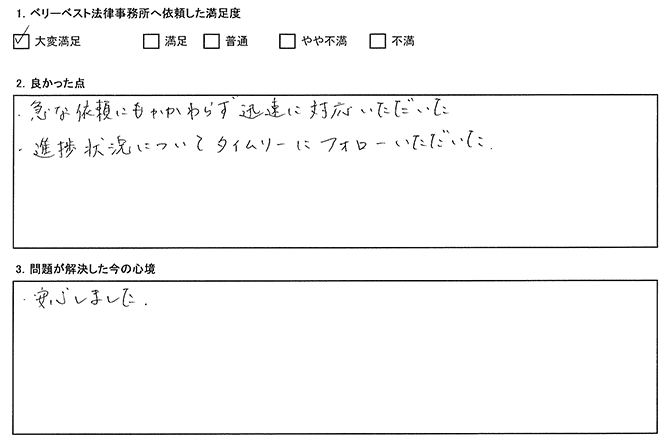 1. ベリーベスト法律事務所へ依頼した満足度
☑ 大変満足 □ 満足 □ 普通 □ やや不満 □ 不満
2. 良かった点
・急な依頼にもかかわらず迅速に対応いただいた
・進捗状況についてタイムリーにフォローいただいた.
3. 問題が解決した今の心境
・安心しました.